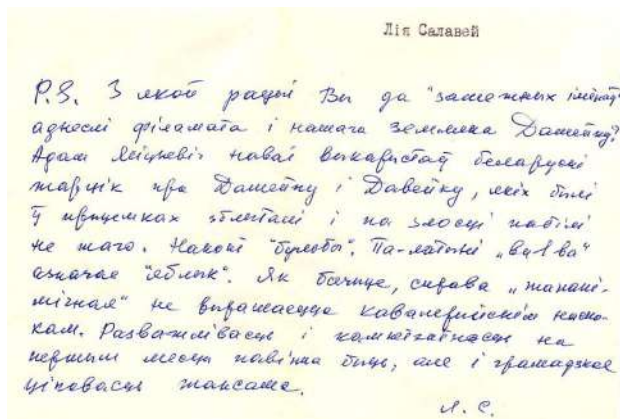 Лія Салавей
P.S. З якой рацыі Вы да "замежных імёнаў"
аднеслі філамата і нашага земляка Дамейку?
Адам Міцкевіч нават выкарыстаў беларускі
жарцік пра Дамейку і Давейку, якіх былі
ў прыцемках зблыталі і па злосці набілі
не таго. Наконт "бульбы". Па-латыні "bulba"
азначае "яблык". Як бачыце, справа "тапані-
мічная" не вырашаецца кавалерыйскім наско-
кам. Разважлівасць і кампетэнтнасць на
першым месцы павінна быць, але і грамадская
цнотасць таксама.
Л. С.